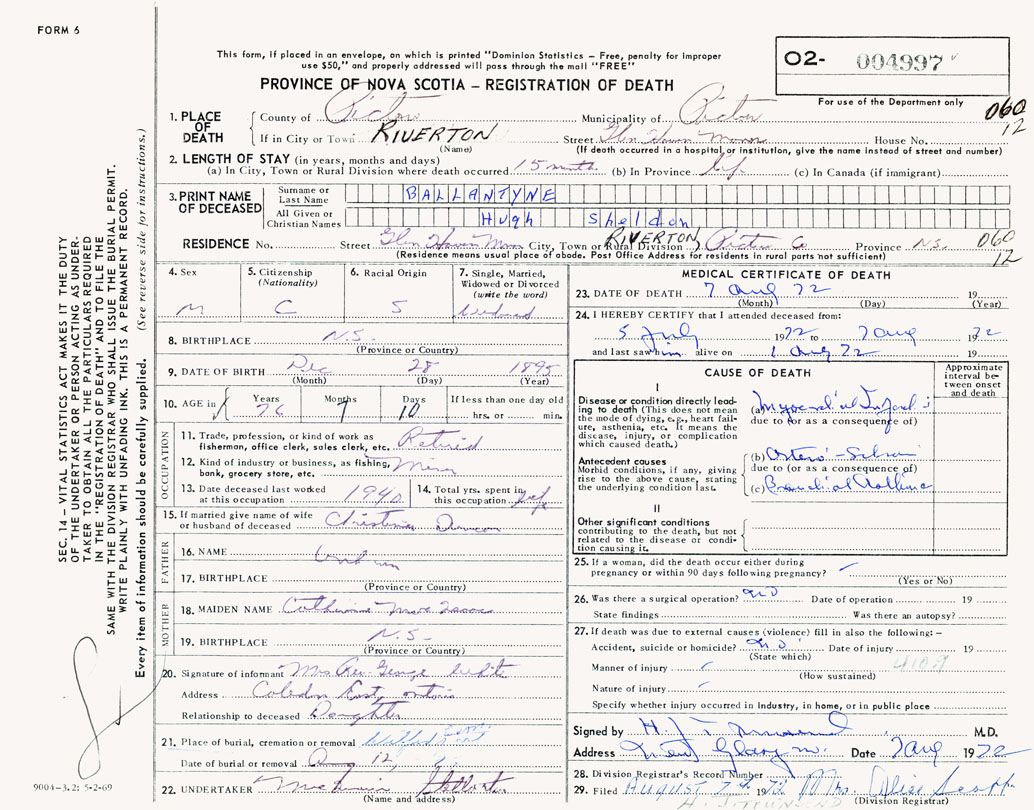 FORM 6
This form, if placed in an envelope, on which is printed "Dominion Statistics – Free, penalty for improper
use $50," and properly addressed will pass through the mail "FREE"
O2- 004997
PROVINCE OF NOVA SCOTIA – REGISTRATION OF DEATH
For use of the Department only
060
12
1. PLACE OF DEATH
County of Pictou Municipality of Pictou
If in City or Town RIVERTON Street Glen Haven Manor House No.
(Name) (If death occurred in a hospital or institution, give the name instead of street and number)
2. LENGTH OF STAY (in years, months and days)
(a) In City, Town or Rural Division where death occurred 15 mnths (b) In Province Life (c) In Canada (if immigrant)
3. PRINT NAME OF DECEASED
Surname or Last Name BALLANTYNE
All Given or Christian Names Hugh Sheldon
RESIDENCE No. Street Glen Haven Manor City, Town or Rural Division RIVERTON, Pictou Co Province N.S. 060
12
(Residence means usual place of abode. Post Office Address for residents in rural parts not sufficient)
4. Sex M
5. Citizenship (Nationality) C
6. Racial Origin S
7. Single, Married, Widowed or Divorced (write the word) Widowed
8. BIRTHPLACE N.S.
(Province or Country)
9. DATE OF BIRTH Dec 28 1895
(Month) (Day) (Year)
10. AGE in Years 76 Months 7 Days 10 If less than one day old
hrs. or min.
OCCUPATION
11. Trade, profession, or kind of work as fisherman, office clerk, sales clerk, etc. Retired
12. Kind of industry or business, as fishing, bank, grocery store, etc.
13. Date deceased last worked at this occupation 1940
14. Total yrs. spent in this occupation
15. If married give name of wife or husband of deceased Christina
FATHER
16. NAME
17. BIRTHPLACE
(Province or Country)
MOTHER
18. MAIDEN NAME Catherine
19. BIRTHPLACE N.S.
(Province or Country)
20. Signature of informant Mrs Rev George
Address Caledon East, Ontario
Relationship to deceased Daughter
21. Place of burial, cremation or removal
Date of burial or removal Aug 12,
22. UNDERTAKER
(Name and address)
MEDICAL CERTIFICATE OF DEATH
23. DATE OF DEATH 7 Aug 72 19
(Month) (Day) (Year)
24. I HEREBY CERTIFY that I attended deceased from:
5 July 1972 7 Aug 1972
and last saw him alive on 1 Aug 72 19
CAUSE OF DEATH
Approximate interval between onset and death
I
Disease or condition directly leading to death (This does not mean the mode of dying, e.g., heart failure, asthenia, etc. It means the disease, injury, or complication which caused death.)
(a) Myocardial Infarct
due to (or as a consequence of)
Antecedent causes
Morbid conditions, if any, giving rise to the above cause, stating the underlying condition last.
(b)
due to (or as a consequence of)
(c) Bronchial Asthma
II
Other significant conditions contributing to the death, but not related to the disease or condition causing it.
25. If a woman, did the death occur either during pregnancy or within 90 days following pregnancy?
(Yes or No)
26. Was there a surgical operation? NO Date of operation 19
State findings Was there an autopsy?
27. If death was due to external causes (violence) fill in also the following: –
Accident, suicide or homicide? NO Date of injury 19
(State which)
Manner of injury 4109
(How sustained)
Nature of injury
Specify whether injury occurred in industry, in home, or in public place
Signed by M.D.
Address New Glasgow. Date 7 Aug 1972
28. Division Registrar's Record Number
29. Filed August 1972 Mrs.
(Division Registrar)
SEC. 14 – VITAL STATISTICS ACT MAKES IT THE DUTY
OF THE UNDERTAKER OR PERSON ACTING AS UNDER-
TAKER TO OBTAIN ALL THE PARTICULARS REQUIRED
IN THE "REGISTRATION OF DEATH" AND TO FILE THE
SAME WITH THE DIVISION REGISTRAR WHO SHALL ISSUE THE BURIAL PERMIT.
WRITE PLAINLY WITH UNFADING INK. THIS IS A PERMANENT RECORD.
Every item of information should be carefully supplied. (See reverse side for instructions.)
9004-3.2; 5-2-69